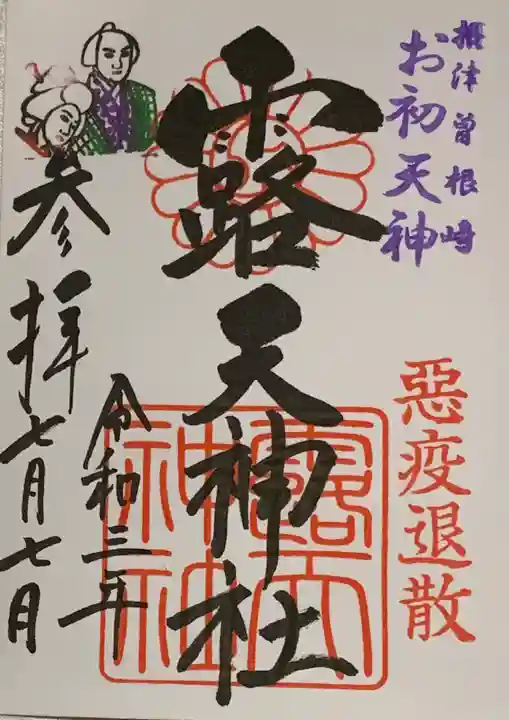 摂津曽根崎
お初天神
惡疫退散
露天神社
露天
神社
令和三年
七月七日
参拝